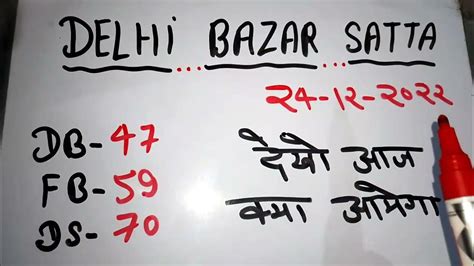 DELHi BAZAR SATTA
24-12-2022
DB- 47
FB- 59
DS- 70
देखो आज
क्या आयेगा